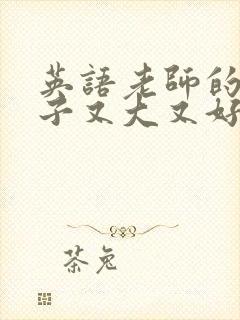 英語老師的
子又大又好
茶兔